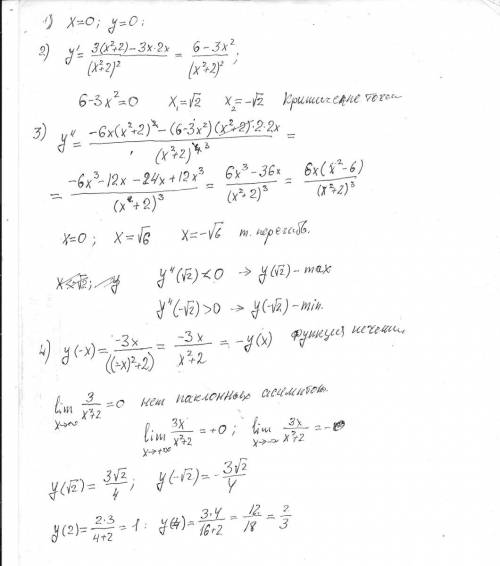 1) x=0; y=0;
2) y' = (3(x²+2) - 3x·2x)/(x²+2)² = (6-3x²)/(x²+2)²;
6-3x²=0 x₁=√2 x₂=-√2 Критические точки
3) y'' = (-6x(x²+2)² - (6-3x²)(x²+2)·2·2x)/(x²+2)³ =
= (-6x³-12x-24x+12x³)/(x²+2)³ = (6x³-36x)/(x²+2)³ = (6x(x²-6))/(x²+2)³
x=0; x=√6 x=-√6 т. перегиба.
y''(√2)<0 → y(√2) - max
y''(-√2)>0 → y(-√2) - min.
4) y(-x) = -3x/((-x)²+2) = -3x/(x²+2) = -y(x) Функция нечетная
lim x→∞ 3/(x²+2) = 0 нет наклонных асимптот.
lim x→+∞ 3x/(x²+2) = +0; lim x→-∞ 3x/(x²+2) = -0
y(√2) = 3√2/4; y(-√2) = -3√2/4
y(2) = 2·3/(4+2) = 1: y(4) = 3·4/(16+2) = 12/18 = 2/3